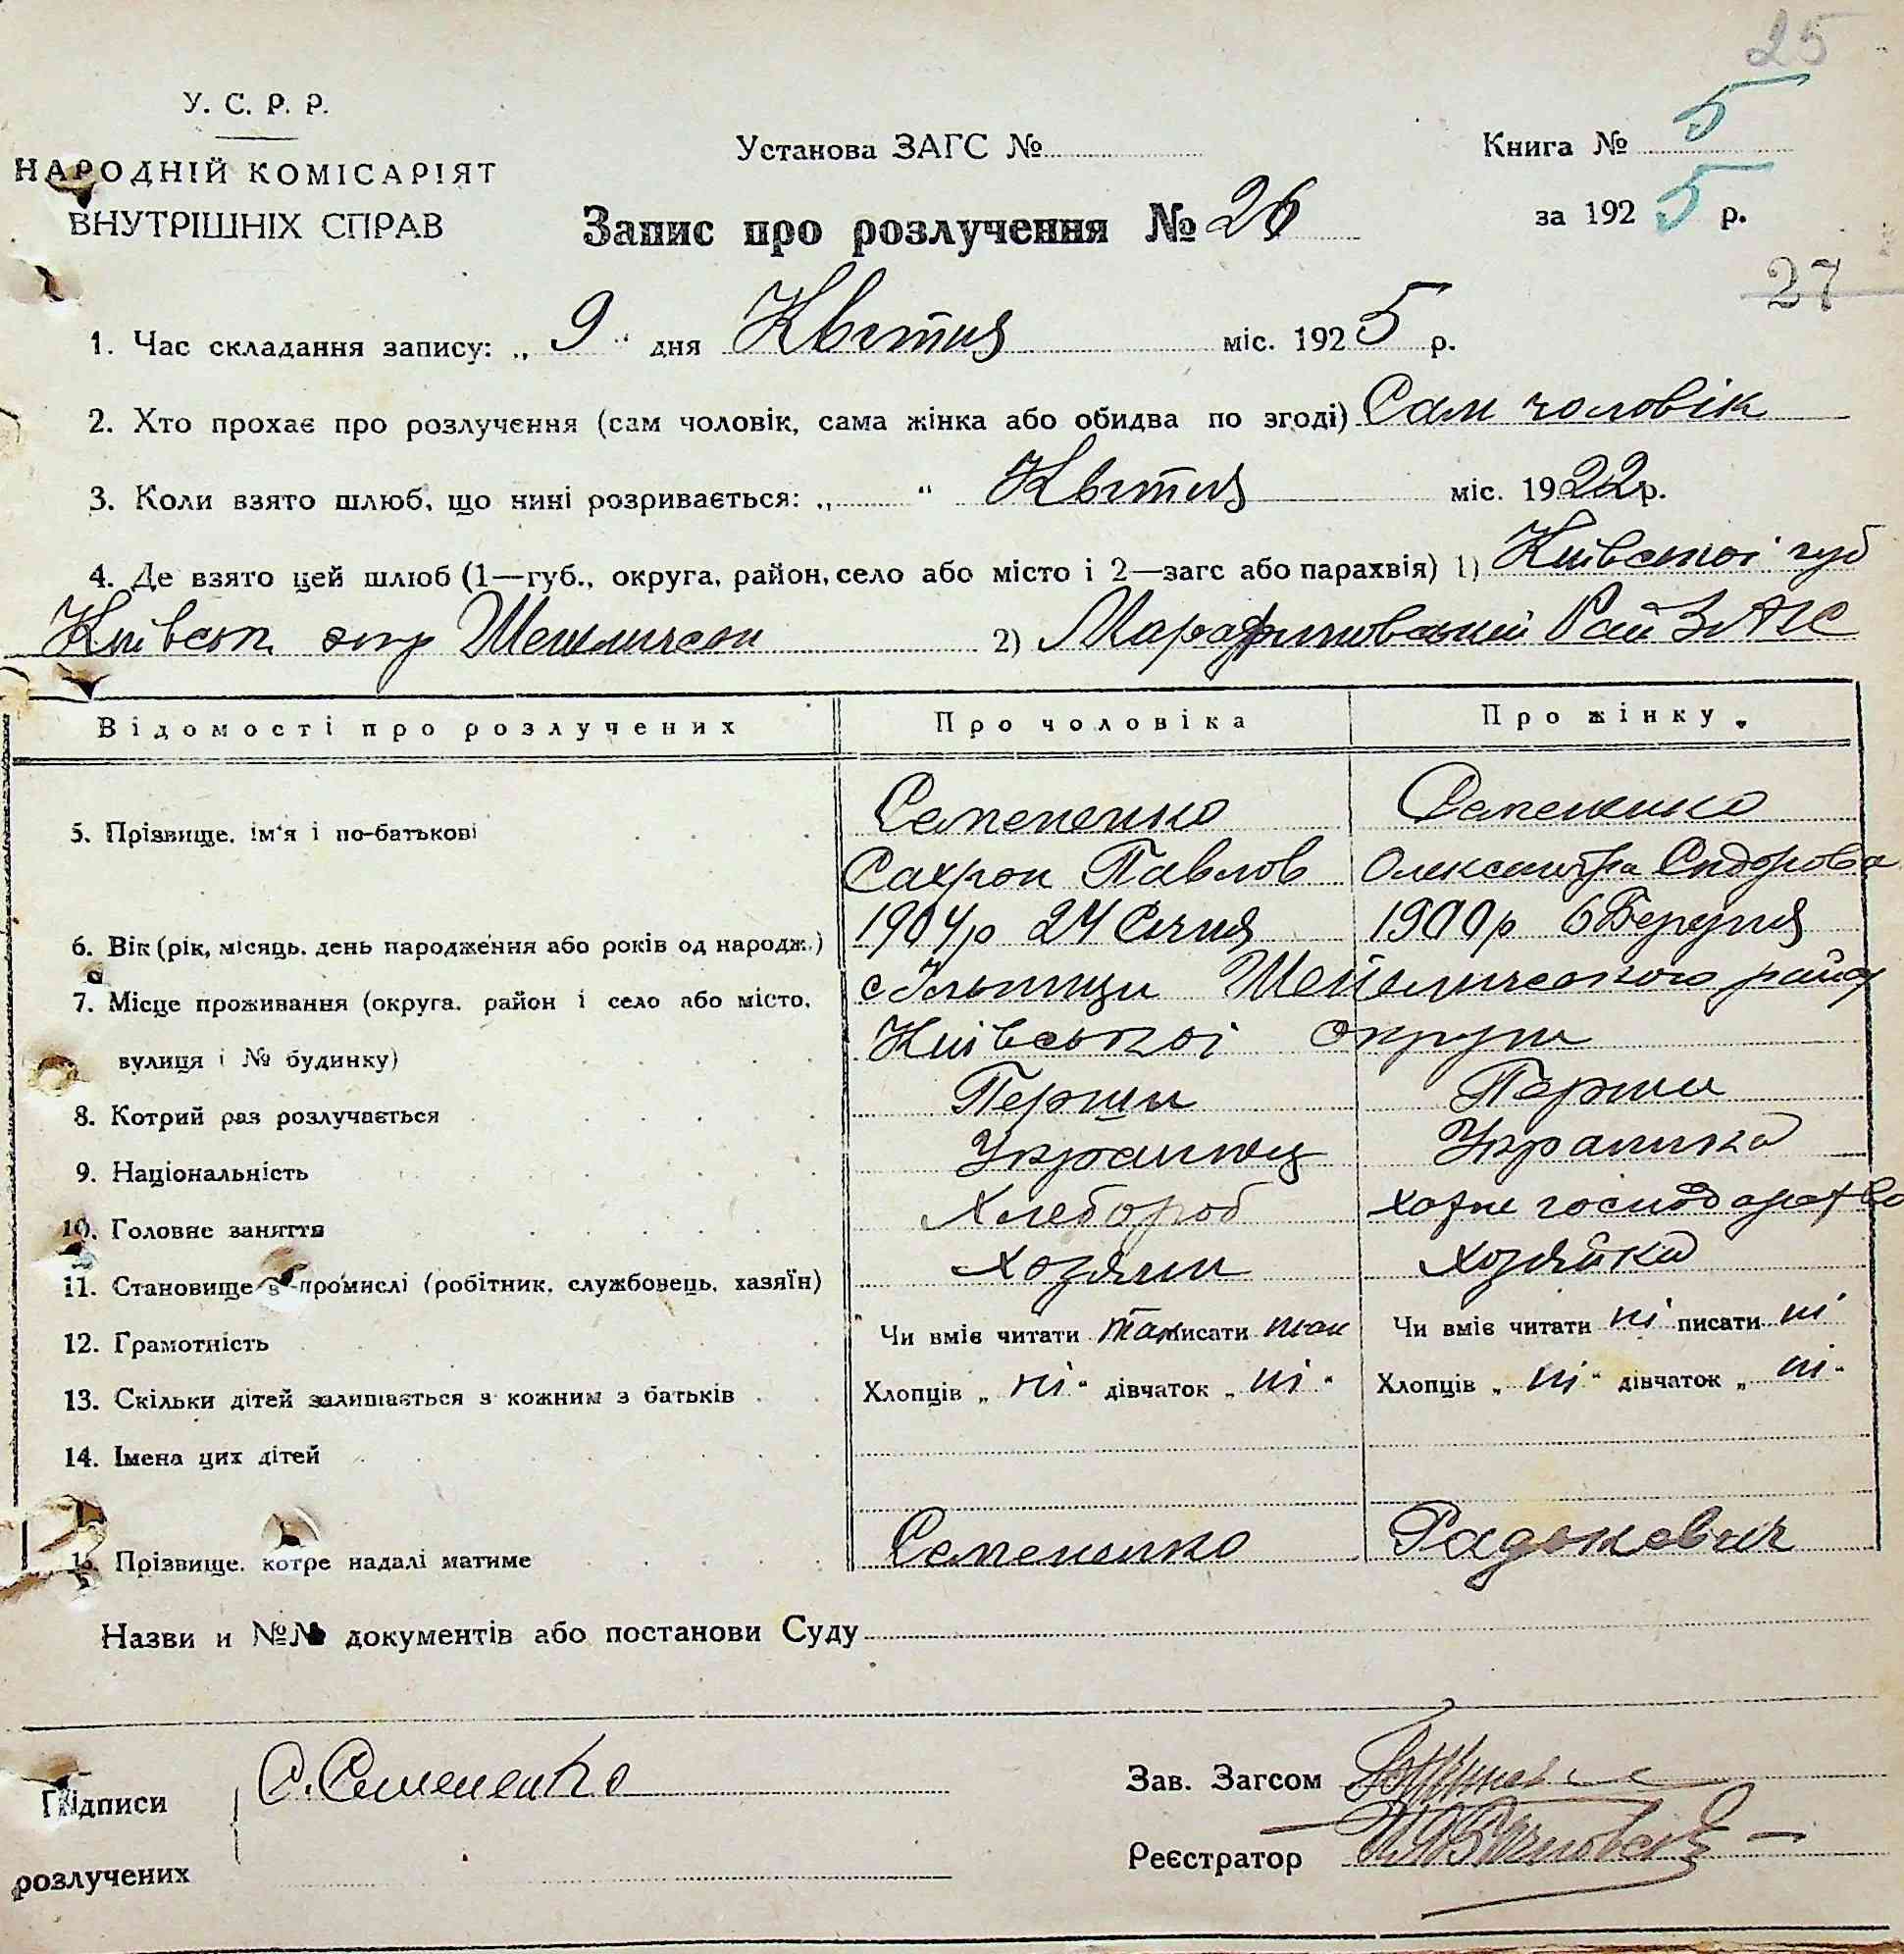 25
У. С. Р. Р.
НАРОДНІЙ КОМІСАРІЯТ
ВНУТРІШНІХ СПРАВ
Установа ЗАГС №
Книга № 5
за 1925 р.
Запис про розлучення № 26
27
1. Час складання запису: „ 9 “ дня Квітня міс. 1925 р.
2. Хто прохає про розлучення (сам чоловік, сама жінка або обидва по згоді) Сам чоловік
3. Коли взято шлюб, що нині розривається: „ “ Квітня міс. 1922 р.
4. Де взято цей шлюб (1—губ., округа, район, село або місто і 2—загс або парахвія) 1) Київської губ
Київськ. окр 2) Рай ЗАГС
Відомості про розлучених Про чоловіка Про жінку
5. Прізвище, ім'я і по-батькові Семененко Семененко
Сахрон Павлов Олександра Сидорова
6. Вік (рік, місяць, день народження або років од народж.) 1904р 24 Січня 1900р 6 Березня
7. Місце проживання (округа, район і село або місто, с району
вулиця і № будинку) Київської округи
8. Котрий раз розлучається Перший Перший
9. Національність Українец Українка
10. Головне заняття Хлебороб хатне господарство
11. Становище в промислі (робітник, службовець, хазяїн) Хозяин Хозяйка
12. Грамотність Чи вміє читати так писати так Чи вміє читати ні писати ні
13. Скільки дітей залишається з кожним з батьків Хлопців „ ні “ дівчаток „ ні “ Хлопців „ ні “ дівчаток „ ні “
14. Імена цих дітей
15. Прізвище, котре надалі матиме Семененко Радкевич
Назви и №№ документів або постанови Суду
Підписи С. Семененко Зав. Загсом
розлучених Реєстратор